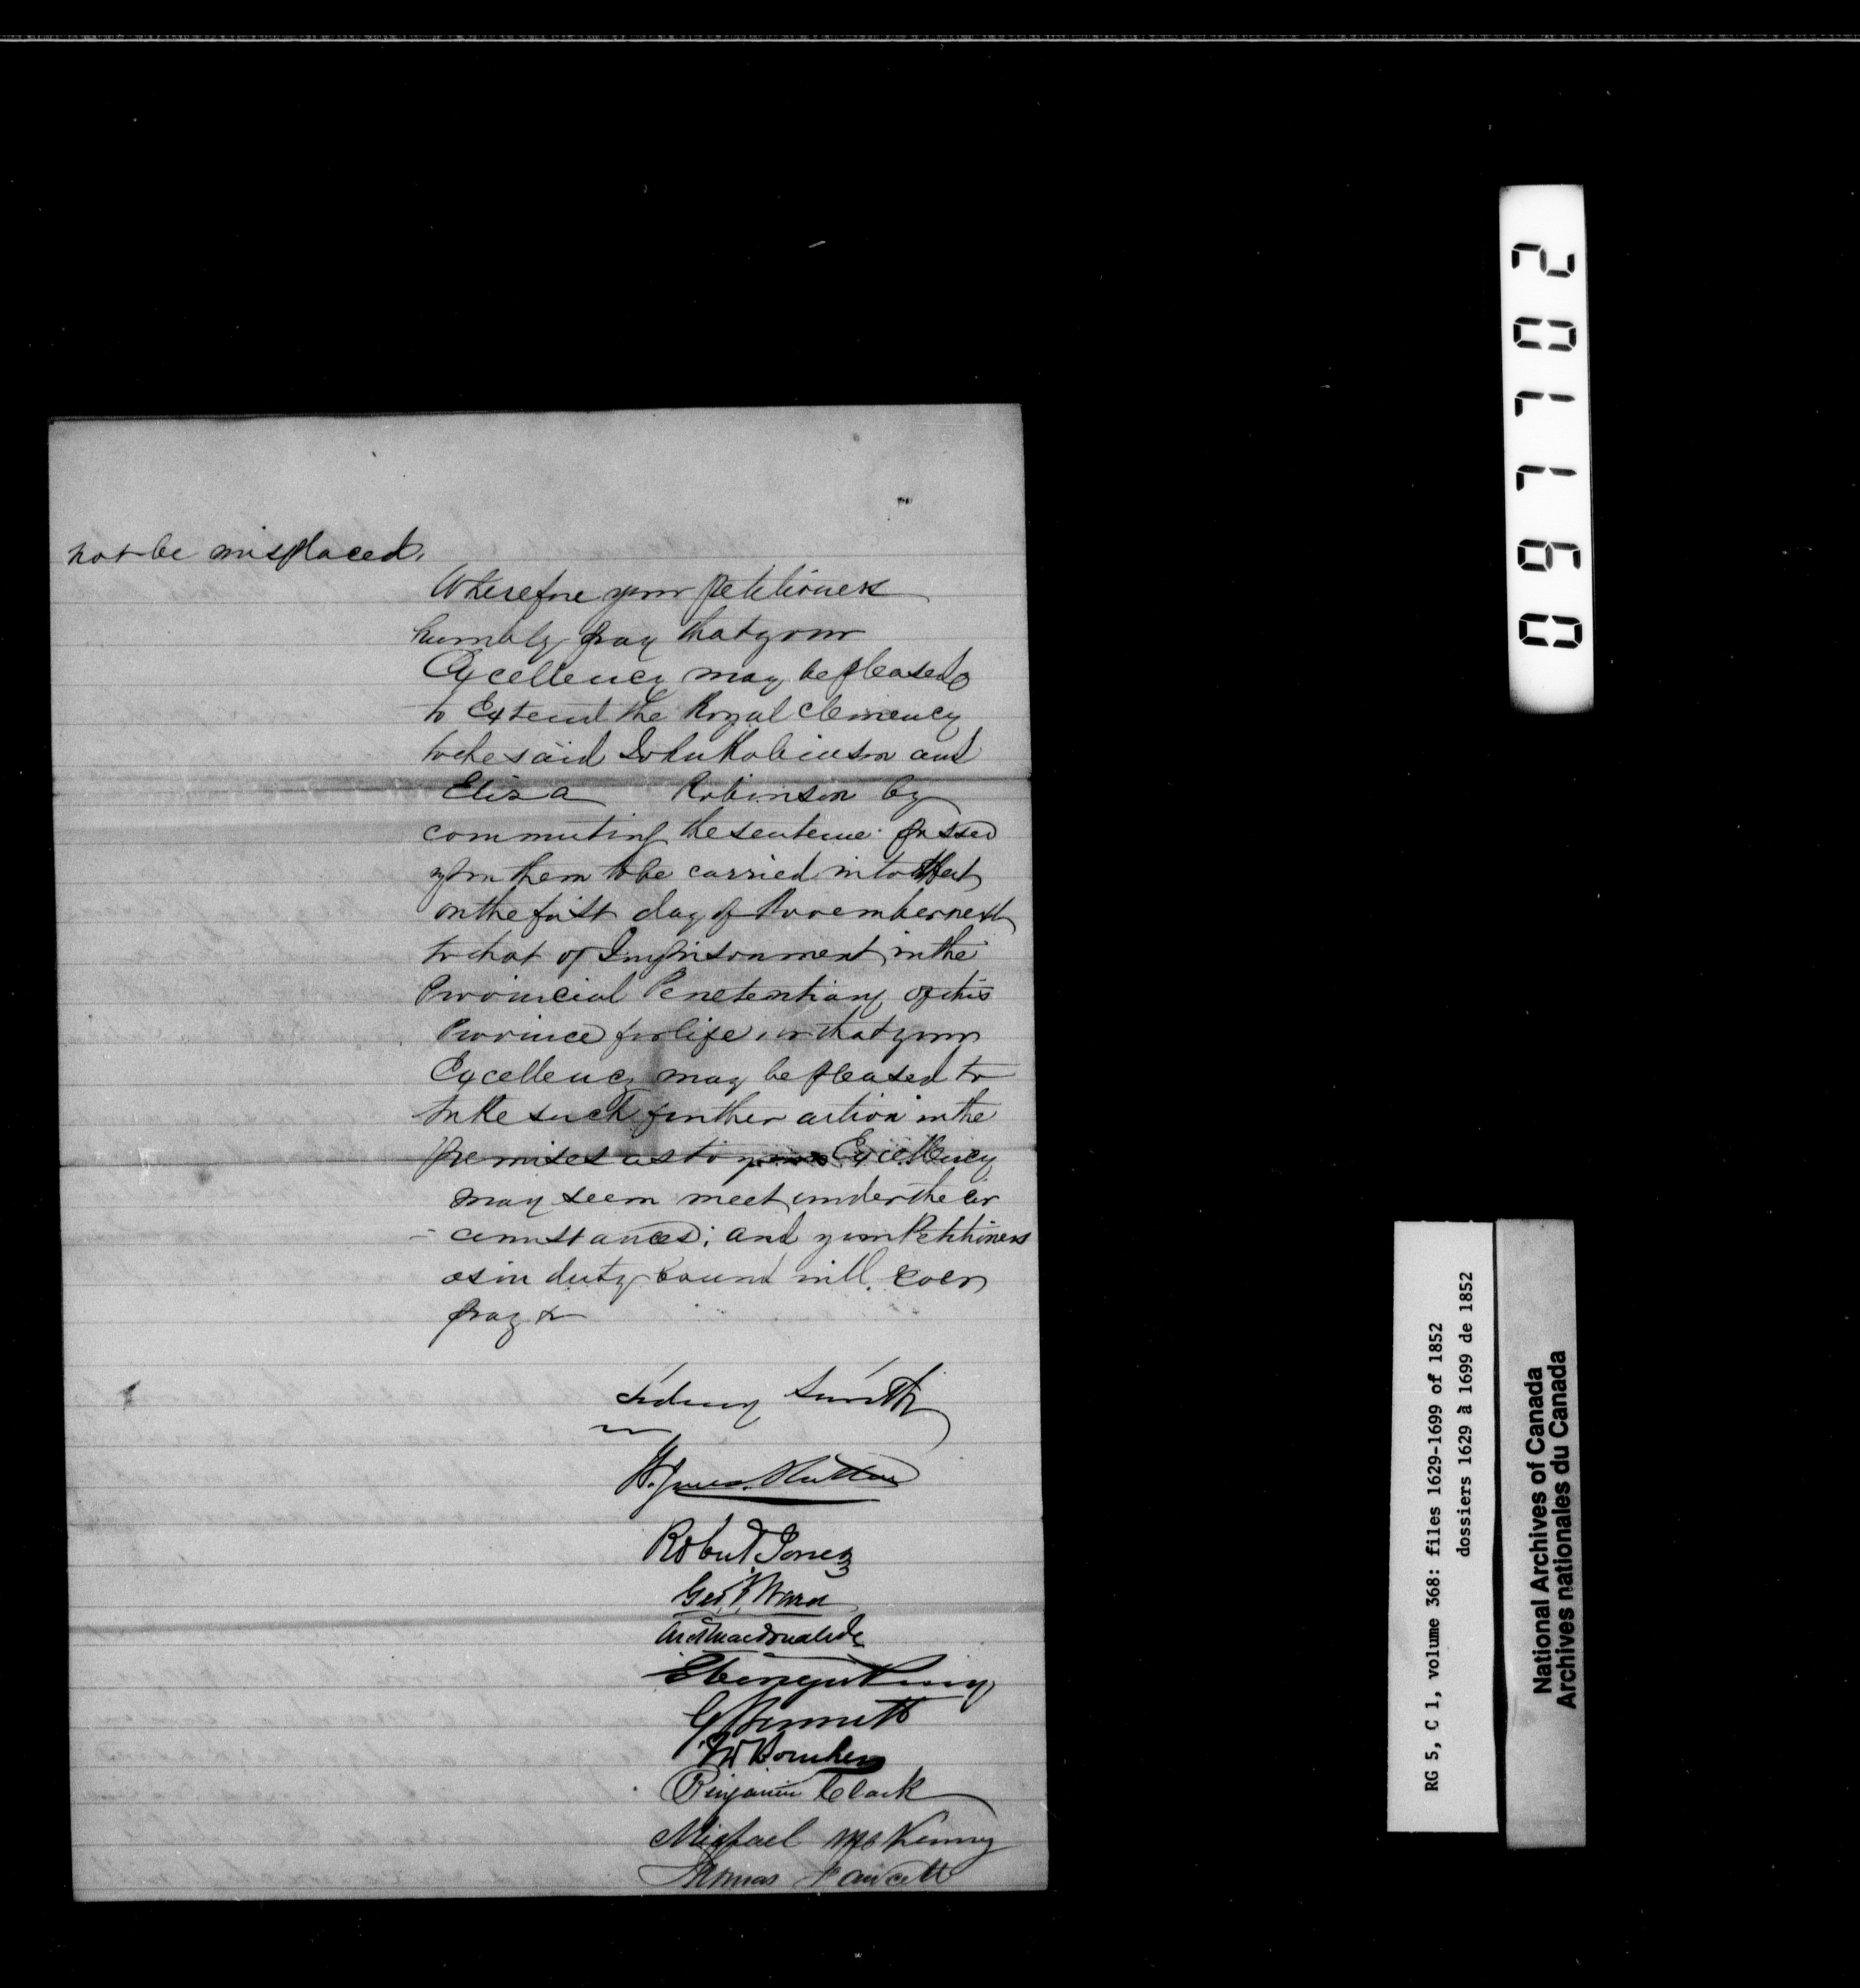 not be misplaced.
Wherefore your petitioners
humbly pray that your
Excellency may be pleased
to Extend the Royal clemency
to the said John Robinson and
Eliza Robinson by
commuting the sentence passed
upon them to be carried into effect
on the first day of November next
to that of Imprisonment in the
Provincial Penetentiary of this
Province for life, or that your
Excellency may be pleased to
take such further action in the
premises as to your Excellency
may seem meet under the cir
- cumstances; and your Petitioners
as in duty bound will ever
pray &
Sidney Smith
Robert Jones
Geo. Ward
Arch Macdonald
Ebenezer Perry
Benjamin Clark
Michael McKenny
Thomas Fawcett
201160
RG 5, C 1, volume 368: files 1629-1699 of 1852
dossiers 1629 à 1699 de 1852
National Archives of Canada
Archives nationales du Canada